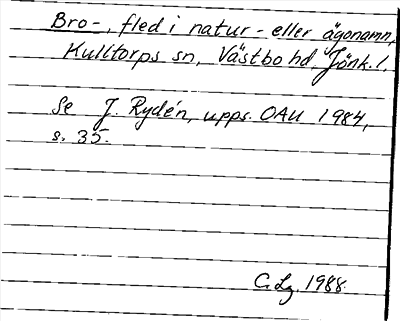 Bro-, fled i natur- eller ägonamn,
Kulltorps sn, Västbo hd, Jönk. l.
Se J. Rydén, upps. OAU 1984,
s. 35.
C. Lg. 1988.